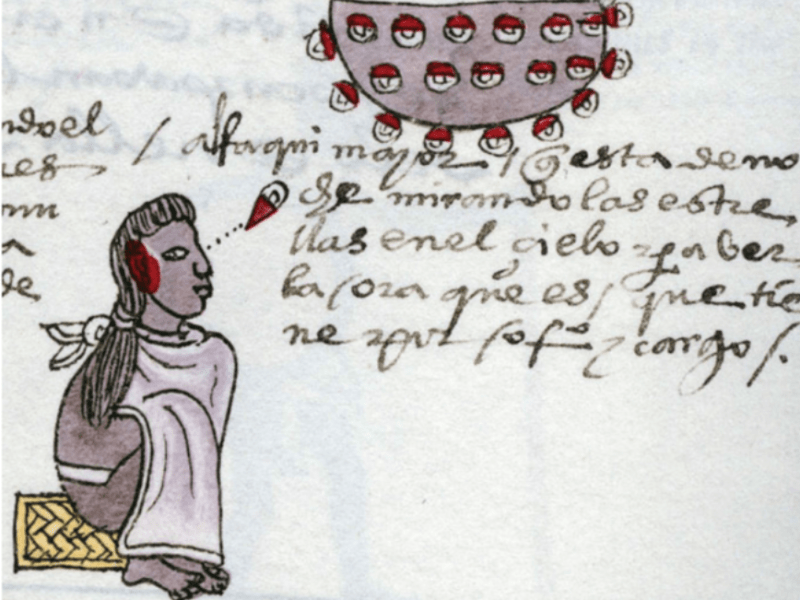 ndo el
de
/ alfaqui mayor / q̃ esta de no
che mirando las estre
llas en el çielo pa ver
la ora que es / que tie
ne por sofº y cargo /.